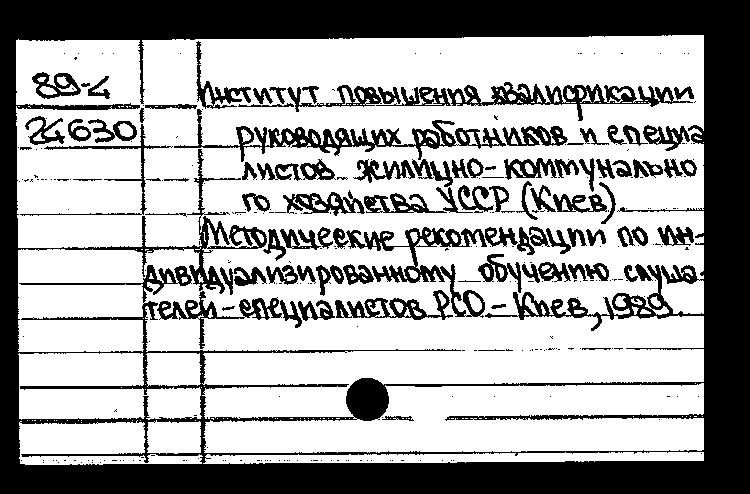 89-4
24630
Институт повышения квалификации
руководящих работников и специа
листов жилищно-коммунально
го хозяйства УССР (Киев).
Методические рекомендации по ин-
дивидуализированному обучению слуша-
телей-специалистов РСО.- Киев, 1989.